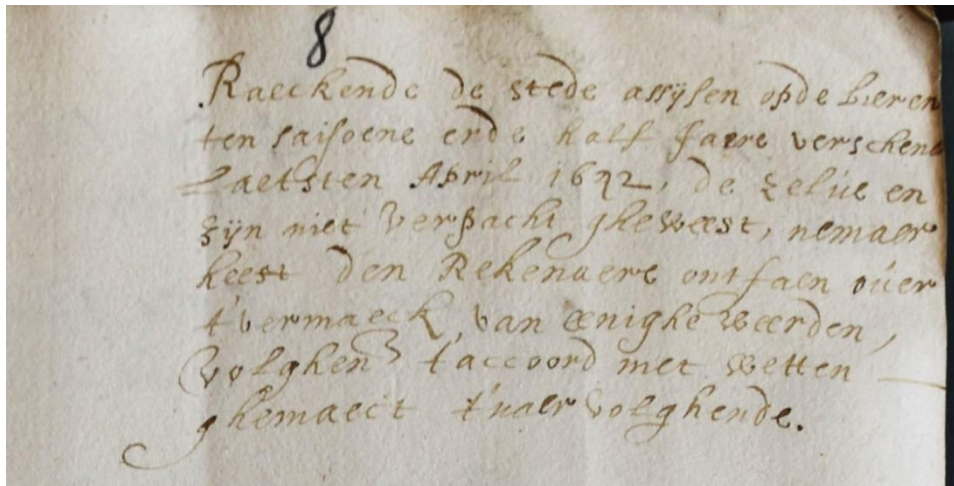 8
Raeckende de stede assysen op de bieren
ten saisoene ende half Jaere verschenen
laetsten April 1692, de zelve en
zyn niet verpacht gheweest, nemaer
heeft den Rekenaere ontfaen over
t'vermaeck van eenighe weerden,
volghens t'accoord met wetten
ghemaect t'naervolghende.